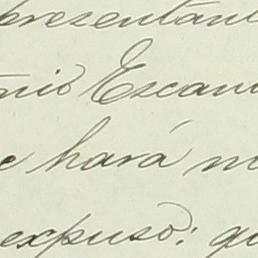 presentant
nio Escan
e hará m
expuso: qu